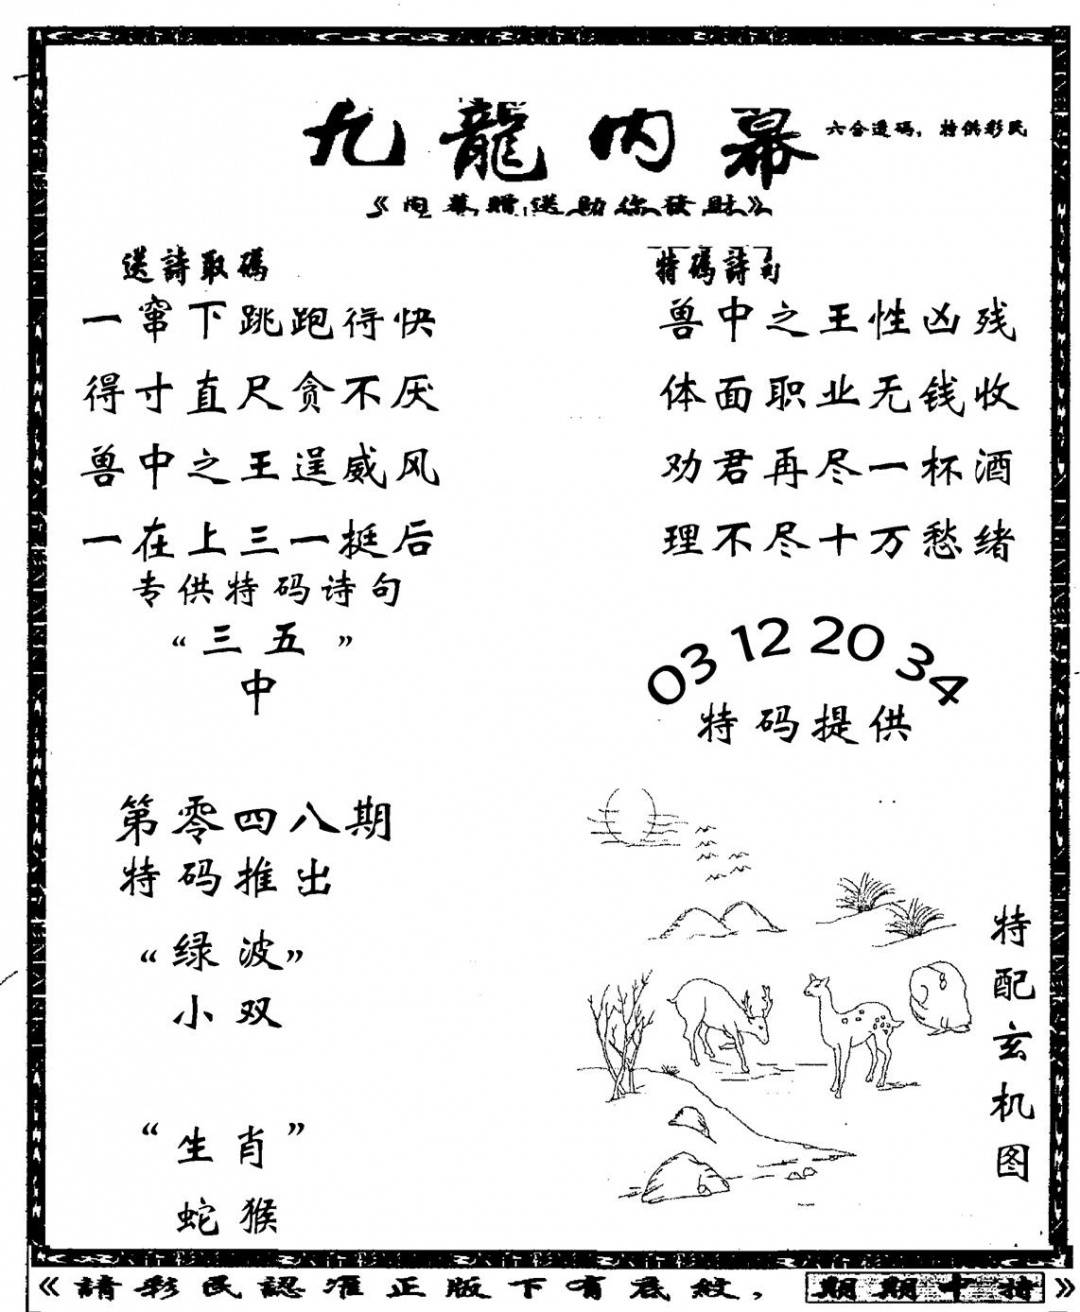 九龍内幕
六合透码，特供彩民
《内幕赠送助你發财》
送詩取碼
一窜下跳跑得快
得寸直尺贪不厌
兽中之王逞威风
一在上三一挺后
专供特码诗句
“三五”
中
特碼詩句
兽中之王性凶残
体面职业无钱收
劝君再尽一杯酒
理不尽十万愁绪
03 12 20 34
特码提供
第零四八期
特码推出
“绿波”
小双
“生肖”
蛇猴
特配玄机图
《請彩民認准正版下有底紋，期期中特》